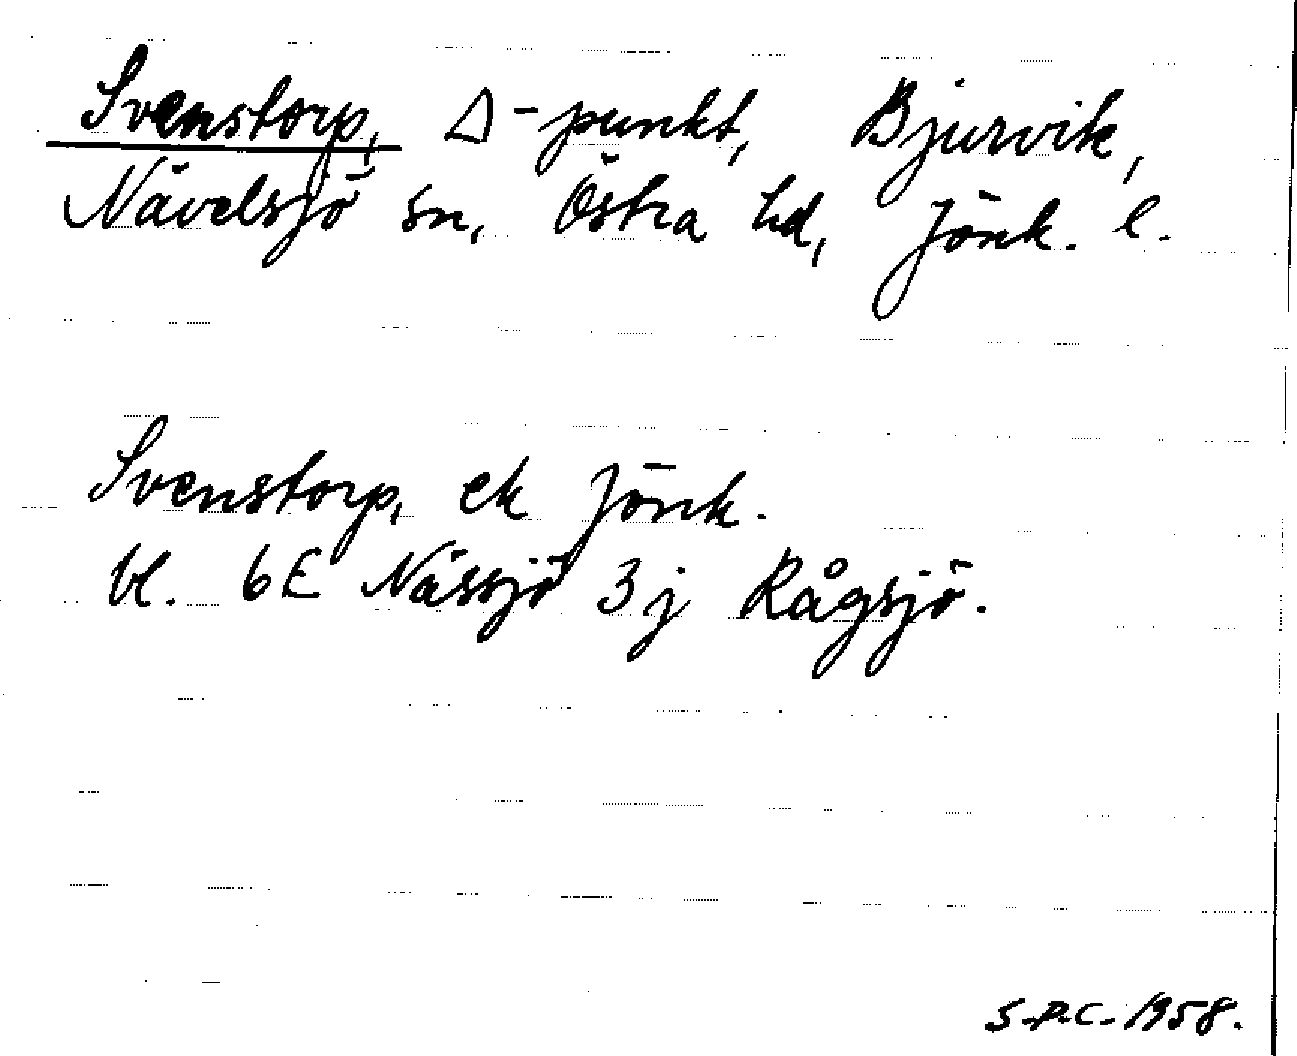 Svenstorp, Δ-punkt, Bjurvik,
Nävelsjö sn, Östra hd, Jönk. l.
Svenstorp, ek Jönk.
bl. 6E Nässjö 3j Rågsjö.
S.P.C. 1958.